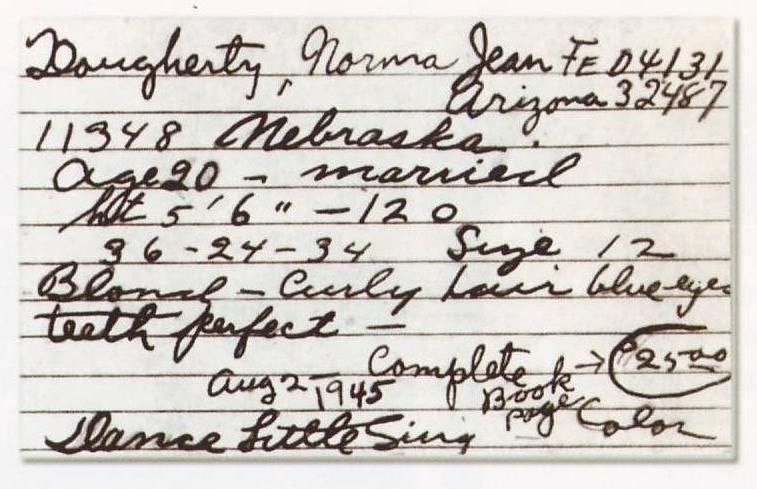 Dougherty, Norma Jean FE D4131
Arizona 32487
11348 Nebraska.
Age 20 - married
ht 5'6" - 120
36-24-34 Size 12
Blond - Curly hair blue-eyes
teeth perfect -
Aug 2-, 1945 Complete Book page → $25.00
Color
Dance Little Sing